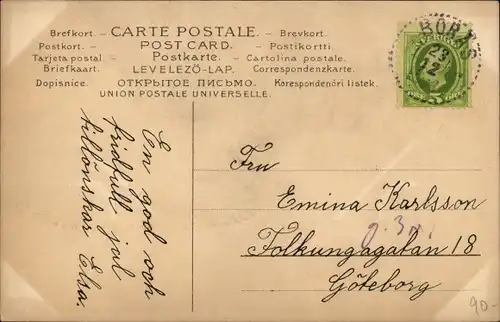 Brefkort. – CARTE POSTALE. – Brevkort.
Postkort. – POST CARD. – Postikortti.
Tarjeta postal – Postkarte. – Cartolina postale.
Briefkaart. – LEVELEZŐ-LAP. – Correspondenzkarte.
Dopisnice. – ОТКРЫТОЕ ПИСЬМО. – Korespondenční listek.
UNION POSTALE UNIVERSELLE.
BORÅS
23
12
5
En god och
fridfull jul
tillönskar Elsa.
Fru
Emina Karlsson
Folkungagatan 18
Göteborg
90-